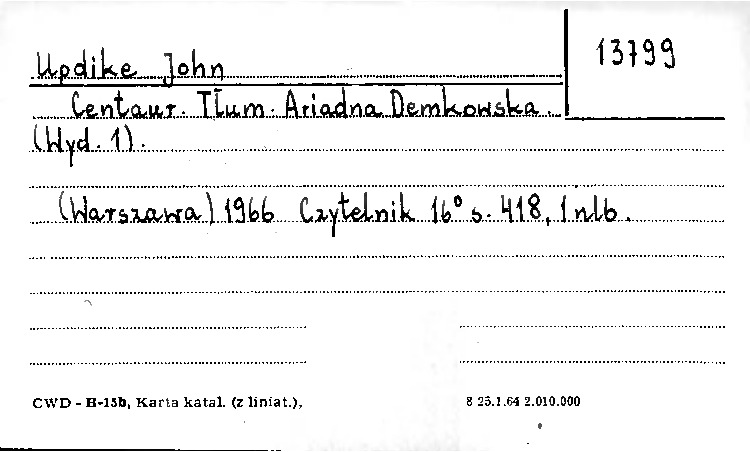 13799
Updike John
Centaur. Tłum. Ariadna Demkowska.
(Wyd. 1).
(Warszawa) 1966 Czytelnik 16° s. 418, 1 nlb.
CWD - H-15b, Karta katal. (z liniat.), 8 25.1.64 2.010.000